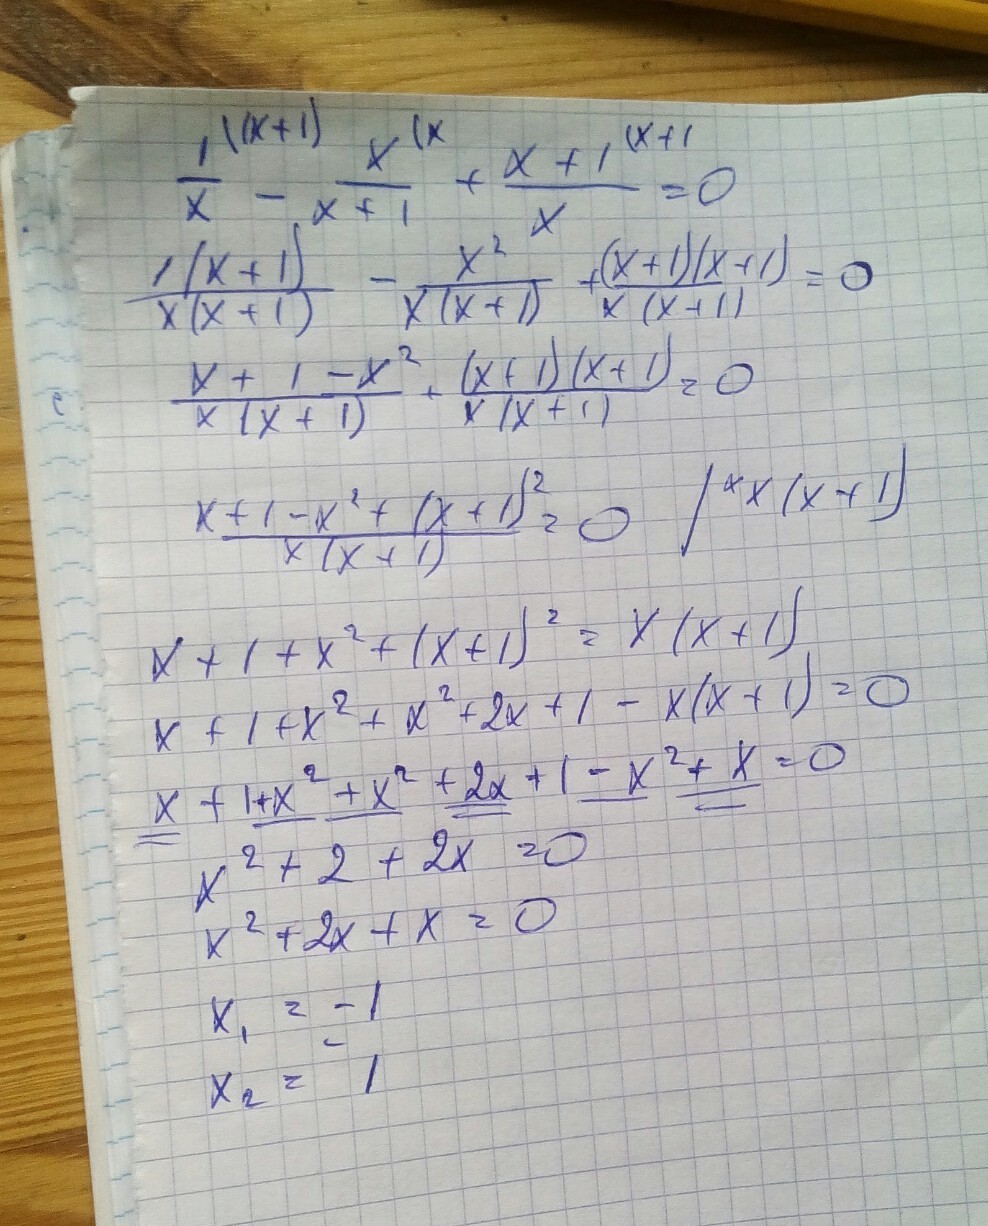 1/x ^((x+1) - x/(x+1) ^(x + (x+1)/x ^(x+1 = 0
1(x+1)/x(x+1) - x²/x(x+1) + (x+1)(x+1)/x(x+1) = 0
x+1-x²/x(x+1) + (x+1)(x+1)/x(x+1) = 0
x+1-x²+(x+1)²/x(x+1) = 0 |*x(x+1)
x+1+x²+(x+1)² = x(x+1)
x+1+x²+x²+2x+1-x(x+1)=0
x+1+x²+x²+2x+1-x²+x=0
x²+2+2x=0
x²+2x+x=0
x₁ = -1
x₂ = 1